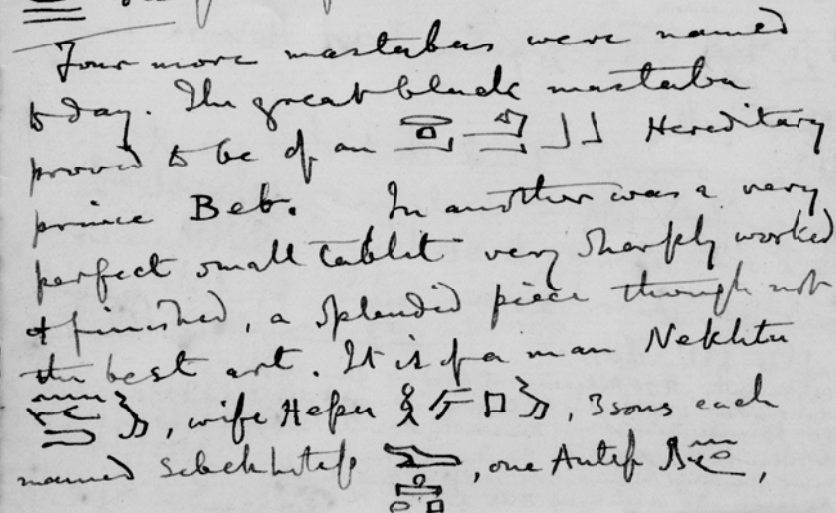 Four more mastabas were named
to day. The great black mastaba
proved to be of an Hereditary
prince Beb. In another was a very
perfect small tablet very sharply worked
& finished, a splendid piece though not
the best art. It is of a man Nekhtu
, wife Heper , 3 sons each
named Sebekhetep , one Antef ,